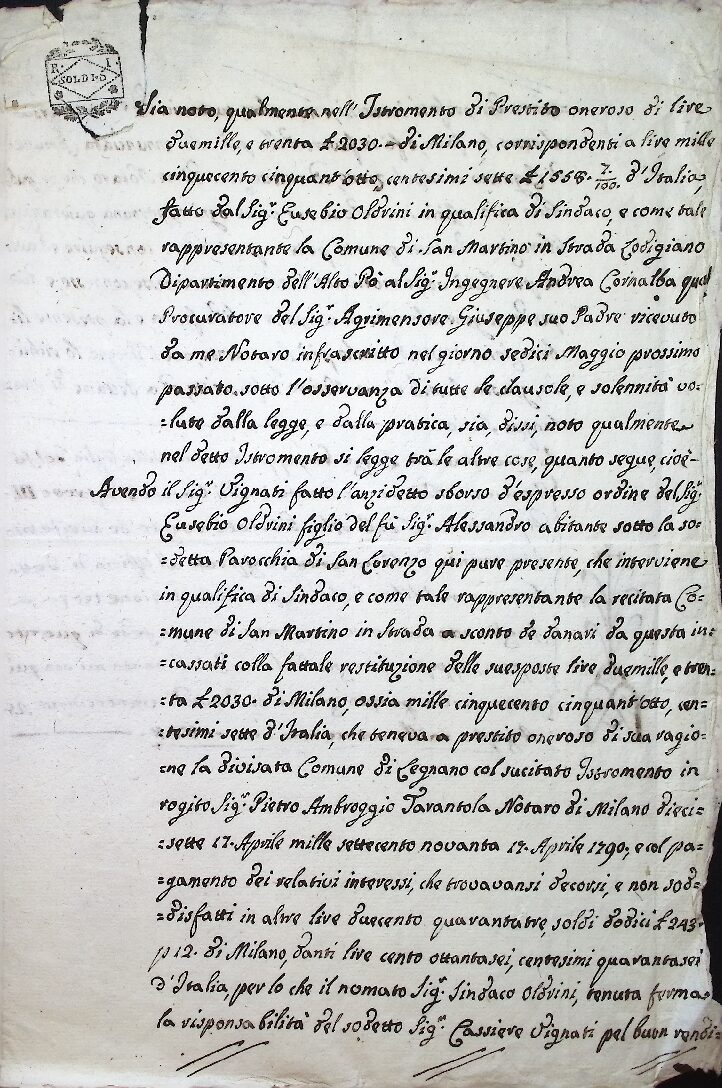 R. I.
SOLDI 5
Sia noto, qualmente nell' Istromento di Prestito oneroso di lire
duemille, e trenta £ 2030.– di Milano, corrispondenti a lire mille
cinquecento cinquant'otto, centesimi sette £ 1558. 7/100. d'Italia,
fatto dal Sig.r Eusebio Oldrini in qualifica di Sindaco, e come tale
rappresentante la Comune di San Martino in Strada Lodigiano
Dipartimento dell'Alto Pò al Sig.r Ingegnere Andrea Cornalba qual
Procuratore del Sig.r Agrimensore Giuseppe suo Padre ricevuto
da me Notaro infrascritto nel giorno sedici Maggio prossimo
passato sotto l'osservanza di tutte le clausole, e solennità vo-
=lute dalla legge, e dalla pratica, sia, dissi, noto qualmente
nel detto Istromento si legge trà le altre cose, quanto segue, cioè-
Avendo il Sig.r Vignati fatto l'anzidetto sborso d'espresso ordine del Sig.r
Eusebio Oldrini figlio del fù Sig.r Alessandro abitante sotto la so-
=detta Parocchia di San Lorenzo qui pure presente, che interviene
in qualifica di Sindaco, e come tale rappresentante la recitata Co-
=mune di San Martino in Strada a sconto de danari da questa in-
=cassati colla fattale restituzione delle suesposte lire duemille, e tren=
=ta £ 2030. di Milano, ossia mille cinquecento cinquant'otto, cen=
=tesimi sette d'Italia, che teneva a prestito oneroso di sua ragio=
=ne la divisata Comune di Legnano col sucitato Istromento in
rogito Sig.r Pietro Ambroggio Tarantola Notaro di Milano dieci=
=sette 17. Aprile mille settecento novanta 17. Aprile 1790; e col pa=
=gamento dei relativi interessi, che trovavansi decorsi, e non sod=
=disfatti in altre lire duecento quarantatre, soldi dodici £ 243.
p 12. di Milano, danti lire cento ottantasei, centesimi quarantasei
d'Italia, per lo che il nomato Sig.r Sindaco Oldrini, tenuta ferma
la risponsabilità del sodetto Sig.r Cassiere Vignati pel buon rendi=